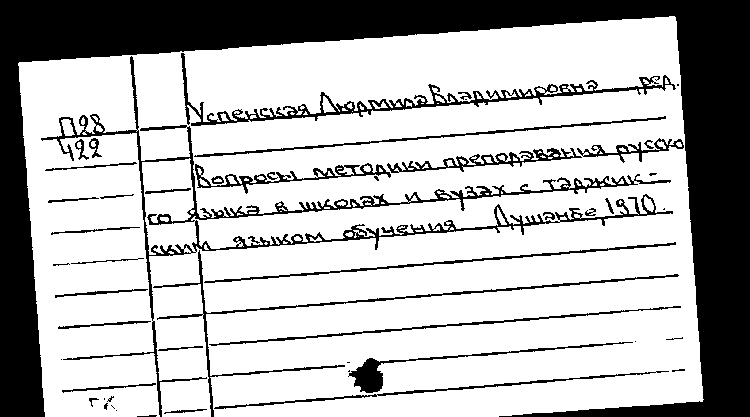 Успенская, Людмила Владимировна, ред.
П28
422
Вопросы методики преподавания русско
го языка в школах и вузах с таджик-
ским языком обучения Душанбе, 1970.
ГК